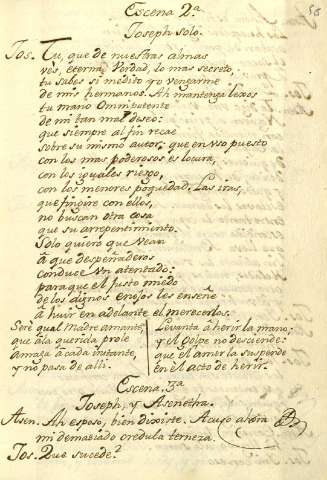 Escena 2.ª
Joseph solo.
Jos. Tu, que de nuestras almas
vès, eterna Verdad, lo mas secreto,
tu sabes si medito yo vengarme
de mis hermanos. Ah mantenga lexos
tu mano Omnipotente
de mi tan mal deseo:
que siempre al fin recae
sobre su mismo autor: que en vso puesto
con los mas poderosos es locura,
con los iguales riesgo,
con los menores poquedad. Las iras,
que fingire con ellos,
no buscan otra cosa
que su arrepentimiento.
Solo quiero que vean
â que despeñaderos
conduce vn atentado:
para que el justo miedo
de los dignos enojos les enseñe
â huir en adelante el merecerlos.
Serè qual Madre amante,
que â la querida prole
amaga â cada instante,
y no pasa de alli.
Levanta â herir la mano,
y el golpe no desciende:
que el amor la suspende
en el acto de herir.
Escena 3.ª
Joseph, y Asenetha.
Asen. Ah esposo, bien dixiste. Acuso ahora
mi demasiado credula terneza.
Jos. Que sucede?